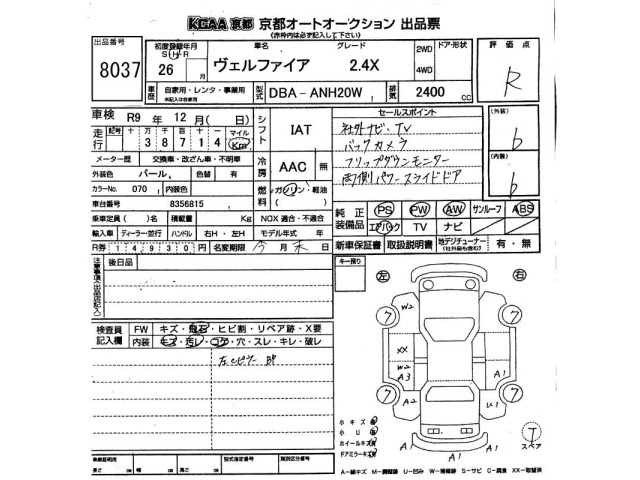 KCAA 京都 京都オートオークション 出品票
(赤枠内は必ず記入して下さい)
出品番号
8037
初度登録年月
S H R
26 月
車名
ヴェルファイア
グレード
2.4X
2WD
4WD
ドア・形状
評価点
R
車歴
自家用・レンタ・事業用
型式
DBA-ANH20W
排気
2400 cc
車検 R9 年 12 月( 日)
走行
記号 十 万 千 百 十 一
3 8 7 1 4
マイル
Km
メーター歴 交換車・改ざん車・不明車
外装色 パール
色替 有
カラーNo. 070
内装色
車台番号 8356815
乗車定員( )名
積載量 Kg
NOX 適合・不適合
輸入車 ディーラー・並行
ハンドル 右H・左H
モデル年式 年
R券 14930 円
名変期限 今月末日
シフト
IAT
冷房
AAC 無
燃料
ガソリン・軽油
( )
セールスポイント
社外ナビ・TV
バックカメラ
フリップダウンモニター
両側パワースライドドア
(外装)
6
(内装)
6
純正装備品
PS PW AW サンルーフ ABS
エアバック TV ナビ
新車保証書 取扱説明書
地デジチューナー
有・無
注意事項(出品店記入)
後日品
キー預り
検査員記入欄
FW キズ・飛石・ヒビ割・リペア跡・X要
内装 キズ・汚レ・コゲ・穴・スレ・キレ・破レ
左センターピラー BP
左
右
7
7
7
7
W2
XX
W2
A3
A2
A1
A1
U1
A1
A1
小キズ
小U
ホイールキズ
ドアミラーキズ
T
スペア
車車証明用
長さ
幅
高さ
型式指定番号
類別区分番号
A-線キズ M-調整跡 U-凹み W-補修跡 S-サビ C-腐食 XX-取替済